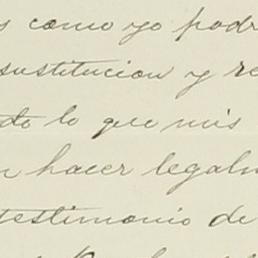 s como yo podr
sustitucion y re
do lo que mis
n hacer legalm
testimonio de